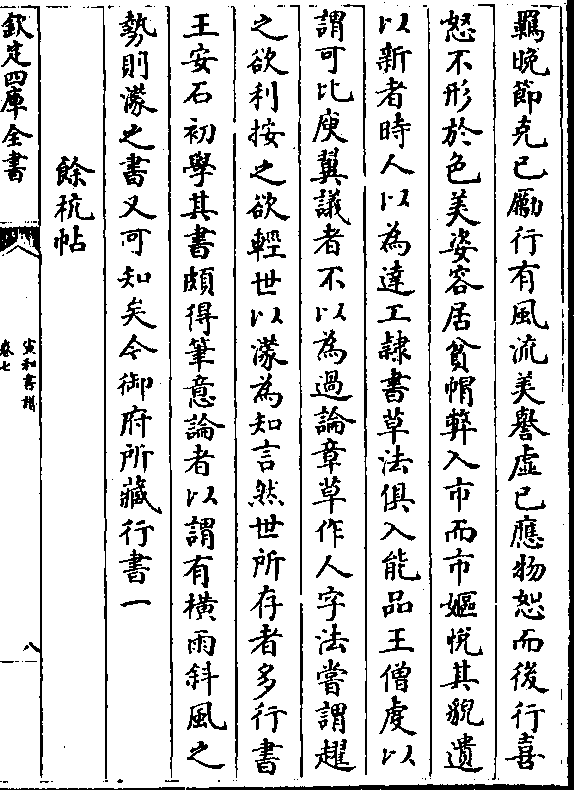 羈晚節克己勵行有風流美譽虛己應物恕而後行喜
怒不形於色美姿容居貧帽弊入市而市嫗悅其貌遺
以新者時人以為達工隸書草法俱入能品王僧虔以
謂可比庾翼議者不以為過論章草作人字法嘗謂趯
之欲利按之欲輕世以濛為知言然世所存者多行書
王安石初學其書頗得筆意論者以謂有橫雨斜風之
勢則濛之書又可知矣今御府所藏行書一
餘杭帖
欽定四庫全書
宣和書譜
卷七
八